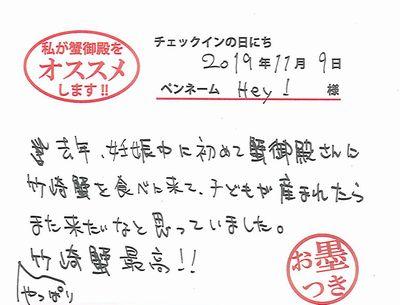 私が蟹御殿を
オススメ
します!!
チェックインの日にち
2019年11月9日
ペンネーム Hey! 様
去年、妊娠中に初めて蟹御殿さんに
竹崎蟹を食べに来て、子どもが産まれたら
また来たいなと思っていました。
やっぱり
竹崎蟹最高!!
お墨
つき